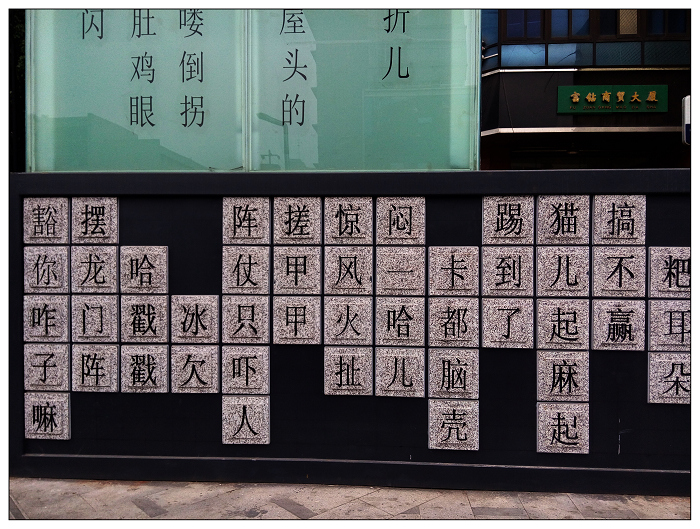 闪
肚鸡眼
喽倒拐
屋头的
折儿
富钻商贸大厦
豁你咋子嘛
摆龙门阵
哈戳戳
冰欠
阵仗只吓人
搓甲甲
惊风火扯
闷一哈儿
卡都脑壳
踢到了
猫儿起麻起
搞不赢
粑耳朵